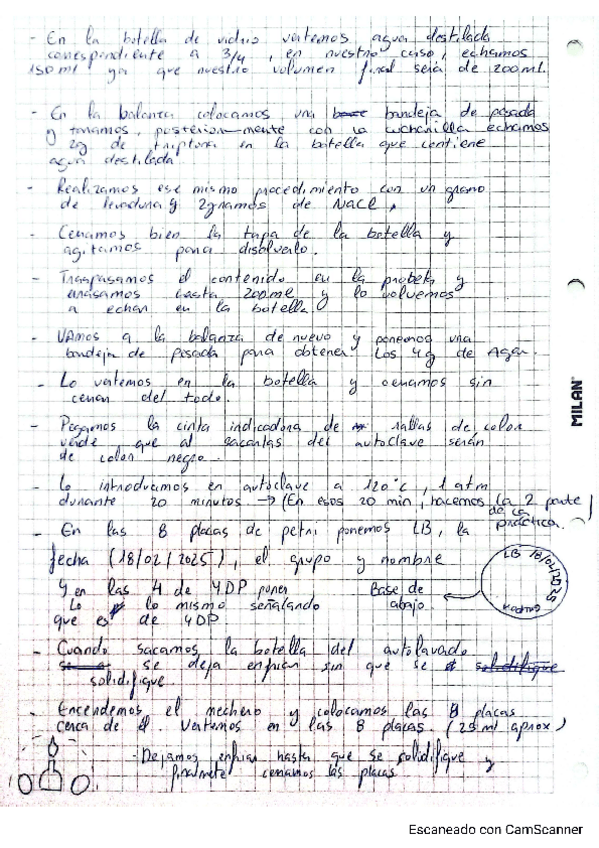 - En la botella de vidrio vertemos agua destilada
correspondiente a 3/4, en nuestro caso, echamos
150 ml ya que nuestro volumen final será de 200 ml.
- En la balanza colocamos una bandeja de pesada
y taramos, posteriormente con la cucharilla echamos
2g de triptona en la botella que contiene
agua destilada.
- Realizamos ese mismo procedimiento con un gramo
de levadura y 2gramos de NaCl,
- Cerramos bien la tapa de la botella y
agitamos para disolverlo.
- Traspasamos el contenido en la probeta y
enrasamos hasta 200ml y lo volvemos
a echar en la botella.
- VAmos a la balanza de nuevo y ponemos una
bandeja de pesada para obtener los 4g de Agar.
- Lo vertemos en la botella y cerramos sin
cerrar del todo.
- Pegamos la cinta indicadora de rallas de color
verde que al sacarlas del autoclave serán
de color negro.
- Lo introducimos en autoclave a 120°C, 1 atm
durante 20 minutos → (En esos 20 min, hacemos la 2 parte
de la práctica.)
- En las 8 placas de petri ponemos LB, la
fecha (18/02/2025), el grupo y nombre
y en las 4 de YDP poner
Lo lo mismo señalando
que es de YDP.
Base de
abajo.
LB 18/02/2025
- Cuando sacamos la botella del autolavado
se deja enfriar sin que se solidifique
solidifique.
- Encendemos el mechero y colocamos las 8 placas
cerca de él. Vertemos en las 8 placas. (25 ml aprox)
- Dejamos enfriar hasta que se solidifique y
finalmete cerramos las placas.
MILAN
Escaneado con CamScanner